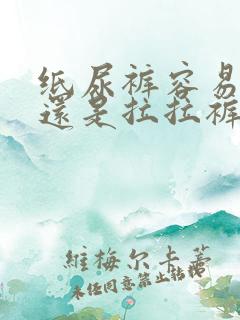 纸尿裤容易
還是拉拉裤
維梅尔卡蒂
未经同意禁止转载